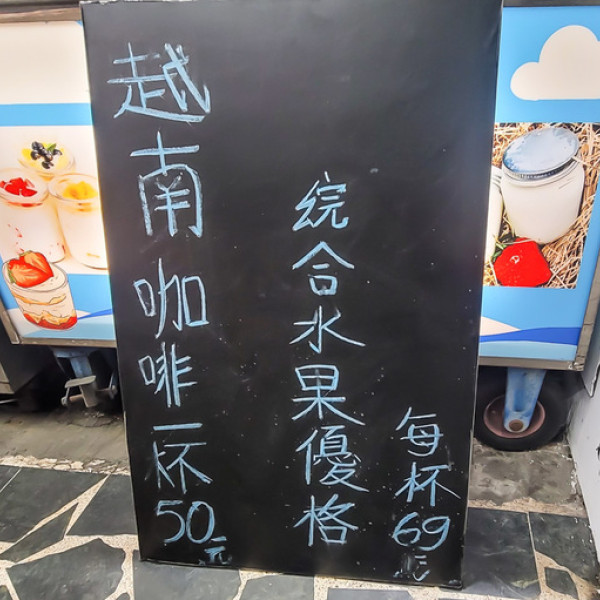 越南咖啡一杯50元
综合水果優格
每杯69元